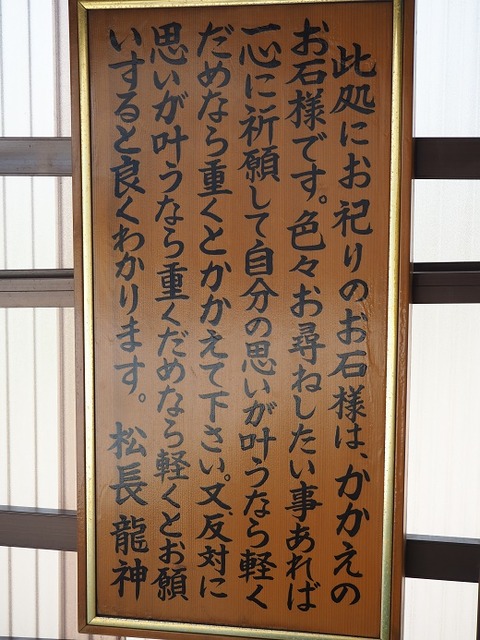 此処にお祀りのお石様は、かかえの
お石様です。色々お尋ねしたい事あれば
一心に祈願して自分の思いが叶うなら軽く
だめなら重くとかかえて下さい。又、反対に
思いが叶うなら重くだめなら軽くとお願
いすると良くわかります。 松長龍神